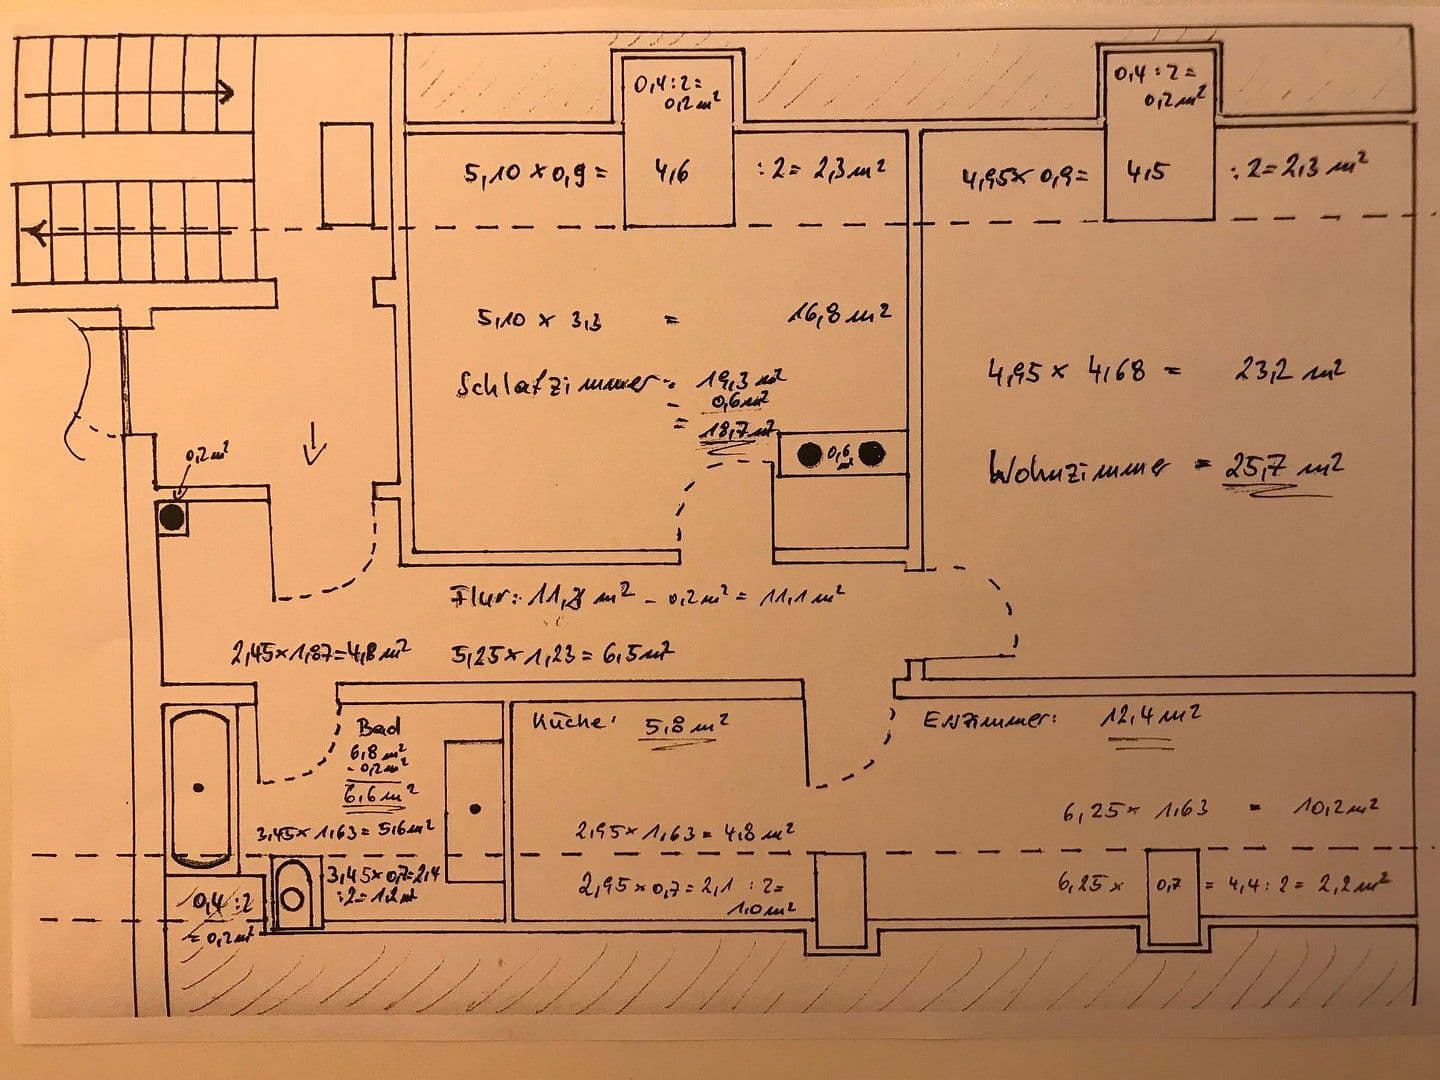 0,4 : 2 =
0,2 m²
0,4 : 2 =
0,2 m²
5,10 x 0,9 = 4,6 : 2 = 2,3 m²
4,95 x 0,9 = 4,5 : 2 = 2,3 m²
5,10 x 3,3 = 16,8 m²
Schlafzimmer = 19,3 m²
- 0,6 m²
= 18,7 m²
0,6
m²
4,95 x 4,68 = 23,2 m²
Wohnzimmer = 25,7 m²
0,2 m²
Flur: 11,3 m² - 0,2 m² = 11,1 m²
2,45 x 1,87 = 4,8 m²
5,25 x 1,23 = 6,5 m²
Bad
6,8 m²
- 0,2 m²
6,6 m²
3,45 x 1,63 = 5,6 m²
3,45 x 0,7 = 2,4
: 2 = 1,2 m²
0,4 : 2
= 0,2 m²
Küche: 5,8 m²
2,95 x 1,63 = 4,8 m²
2,95 x 0,7 = 2,1 : 2 =
1,0 m²
Eßzimmer: 12,4 m²
6,25 x 1,63 = 10,2 m²
6,25 x 0,7 = 4,4 : 2 = 2,2 m²